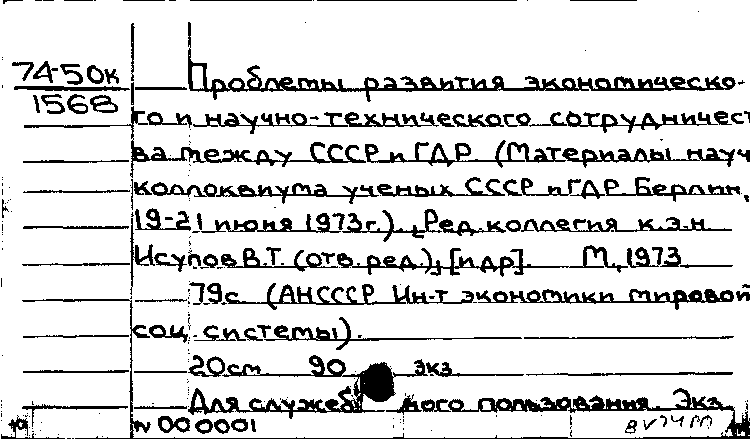 74-50к
1568
Проблемы развития экономическо-
го и научно-технического сотрудничест
ва между СССР и ГДР (Материалы науч
коллоквиума ученых СССР и ГДР. Берлин,
19-21 июня 1973г.). Ред.коллегия к.э.н.
Исупов В.Т. (отв. ред.), [и др]. М., 1973
79с (АНСССР Ин-т экономики мировой
соц. системы).
20см 90 экз
Для служеб ного пользования. Экз
N 000001